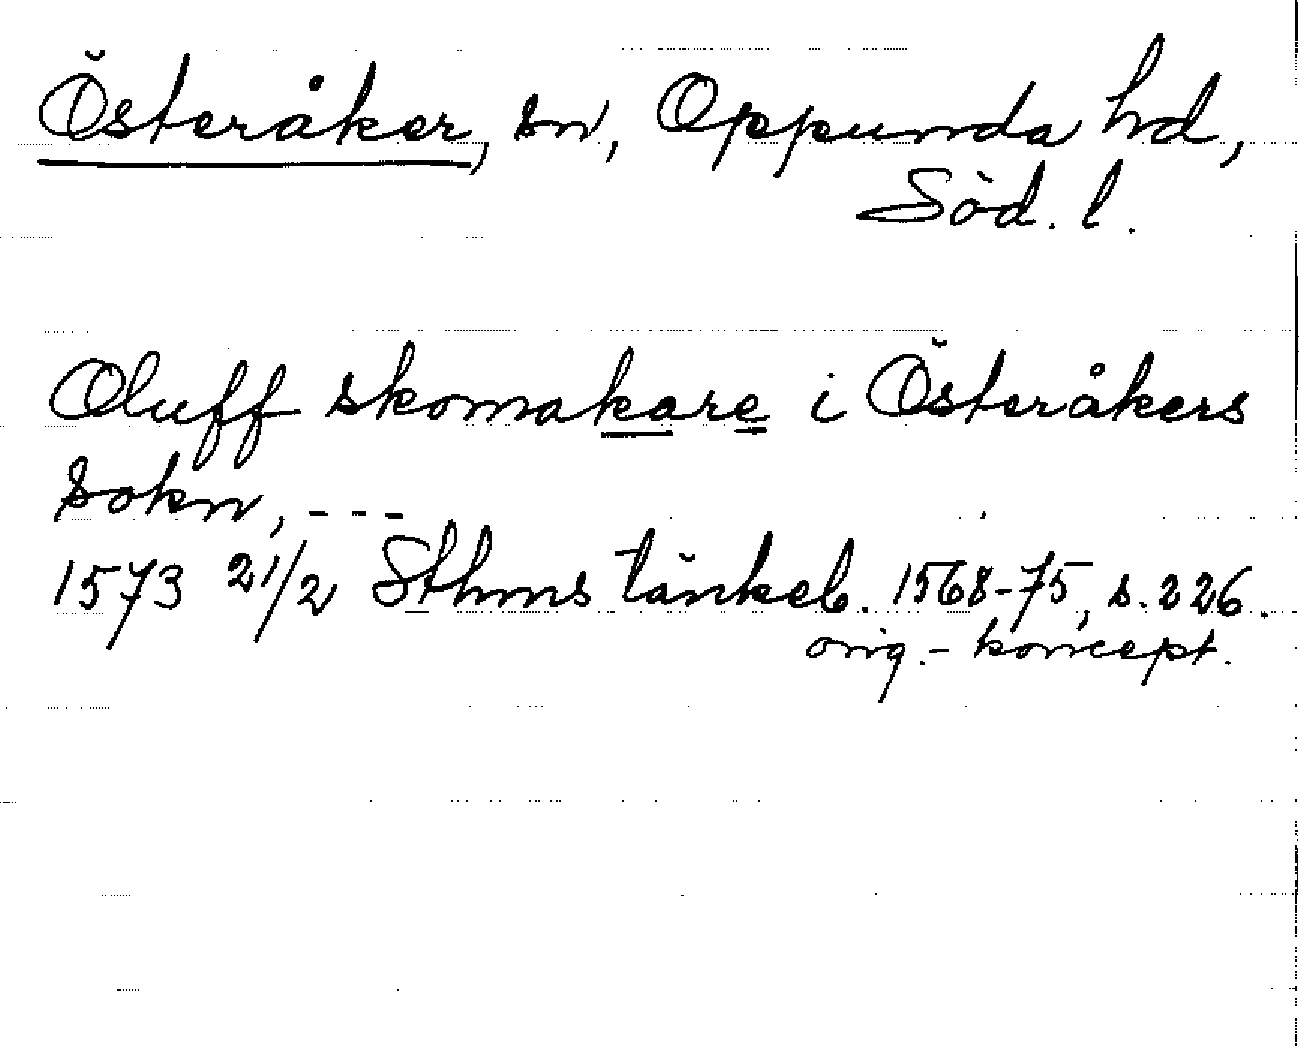 Österåker, sn, Oppunda hd,
Söd. l.
Oluff skomakare i Österåkers
sokn, ---
1573 21/2 Sthms tänkeb. 1568-75, s. 226.
orig.- koncept.